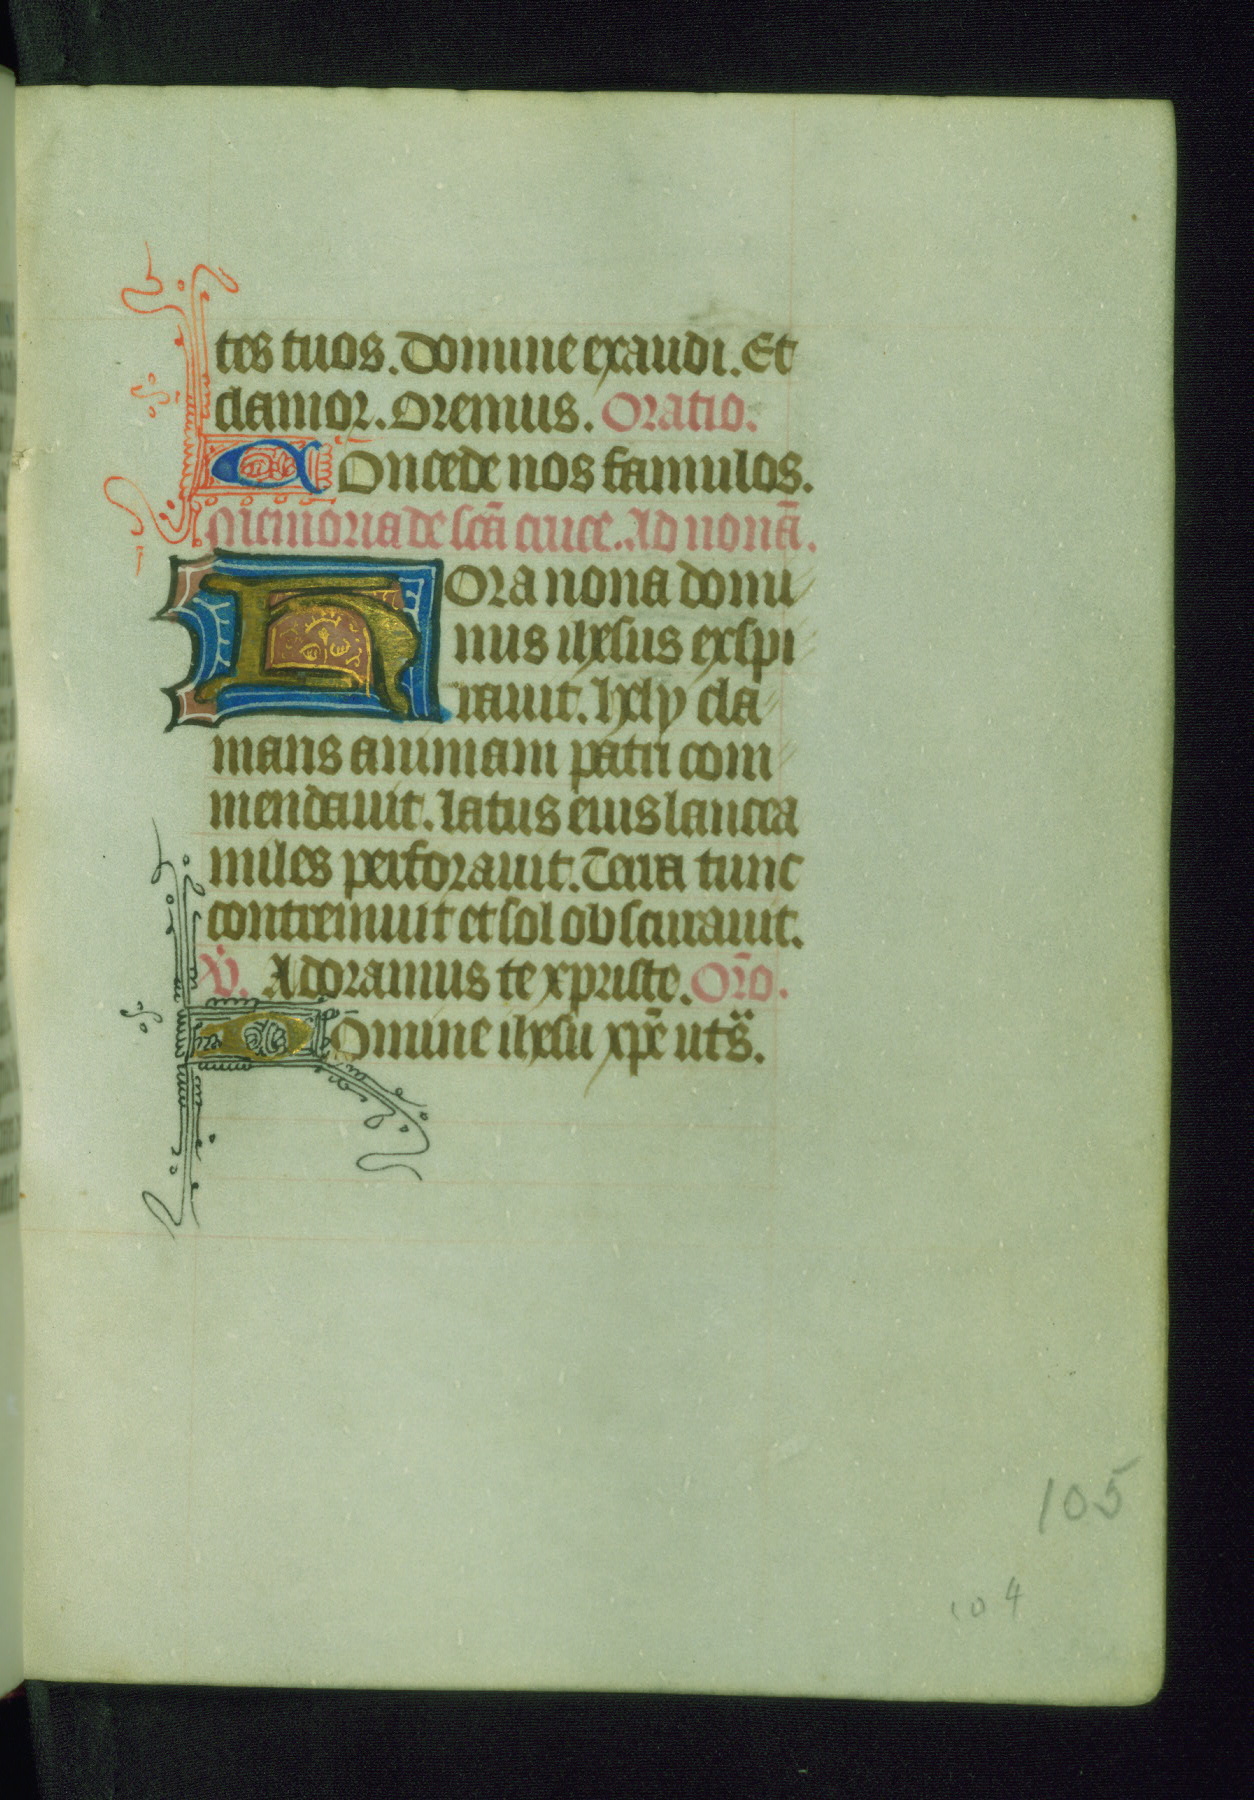 tes tuos. Domine exaudi. Et
clamor. Oremus. Oratio.
Concede nos famulos.
Memoria de scā cruce. Ad nonā.
Hora nona domi
nus ihesus exspi
rauit. hely cla
mans animam patri com
mendauit. latus eius lancea
miles perforauit. Terra tunc
contremuit et sol obscurauit.
V̇. Adoramus te xpriste. Or̄o.
Domine ihesu xp̄e uts̄.
105
104